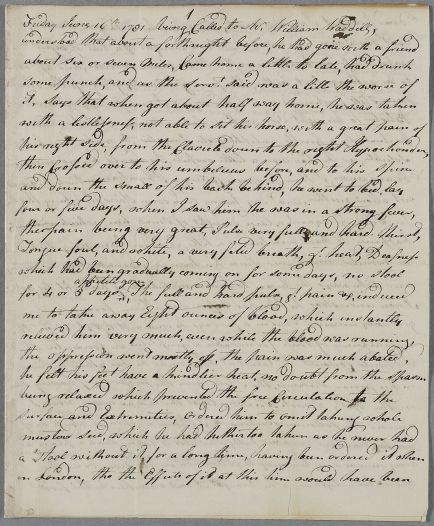 1
Friday June 16th 1781 being Called to Mr. William Waddells,
understood that about a forthnught before, he had gone with a friend
about six or seven Miles, Came home a little to late, had drunk
some punch, and as the Servt. said was a little the worse of
it, says that when got about half way home, he was taken
with a listlessness, not able to sit his horse, with a great pain of
his right side, from the Clavicle down to the right Hypochonder,
then Cross'd over to his umbelicus before, and to his Spine
and down the small of his back behind, he went to bed, lay
four or five days, when I saw him he was in a strong fever,
the pain being very great, Pulse very full and hard thirst,
Tongue foul, and white, a very fetid breath, gt. heat, Deafness
which had been gradually coming on for some days, no stool
appetite gone
for 4 or 5 days, The full and hard pulse, gt. pain &c, induced
me to take away Eight ounces of blood, which instantly
relieved him very much, even while the blood was running
the oppression went mostly off, the pain was much abated,
he felt his feet have a kindlier heat, no doubt from the spasm
being relaxed which prevented the free Circulation to the
surface and Extremities, ordered him to omit taking whole
mustard Seed, which he had hitherto taken as he never had
a Stool without it for a long time, having been ordered it when
in London, tho the Effects of it at this time would have been